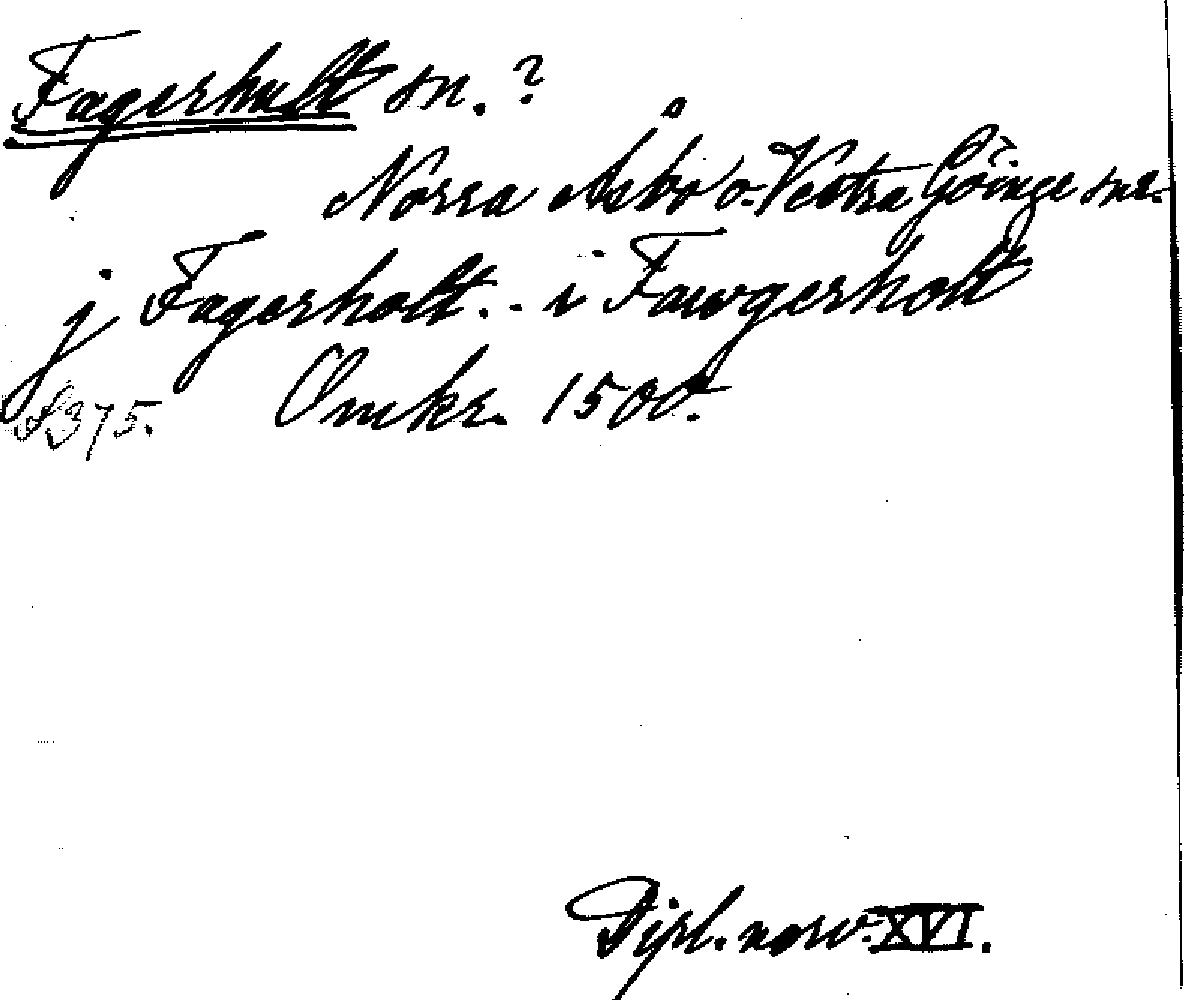 Fagerhult sn.?
Norra Åsbo o. Vestra Göinge snr.
j Fagerholt. - i Fawgerholt
S 375. Omkr. 1500.
Dipl. norv. XVI.